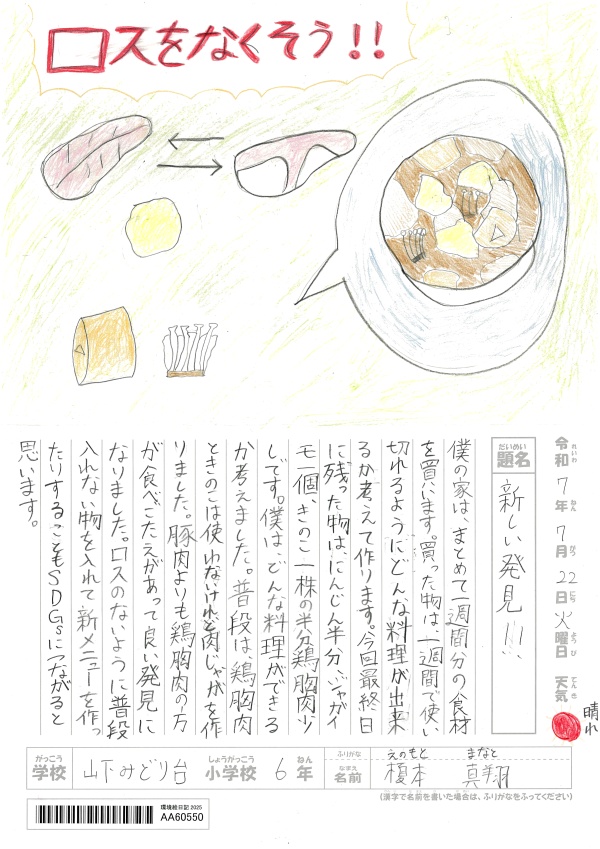 ロスをなくそう!!
令和7年7月22日火曜日 天気 晴れ
れいわ ねん がつ にち ようび てんき
だいめい
題名
新しい発見!!!
僕の家は、まとめて一週間分の食材
を買います。買った物は、一週間で使い
切れるようにどんな料理が出来
るか考えて作ります。今回最終日
に残った物は、にんじん半分、ジャガイ
モ一個、きのこ一株の半分鶏胸肉少
しです。僕は、どんな料理ができる
か考えました。普段は、鶏胸肉
ときのこは使わないけれど肉じゃがを作
りました。豚肉よりも鶏胸肉の方
が食べごたえがあって良い発見に
なりました。ロスのないように普段
入れない物を入れて新メニューを作っ
たりすることもSDGsにつながると
思います。
がっこう しょうがっこう ねん ふりがな えのもと まなと
学校 山下みどり台 小学校 6年 なまえ 名前 榎本 真翔
(漢字で名前を書いた場合は、ふりがなをふってください)
環境絵日記 2025
AA60550